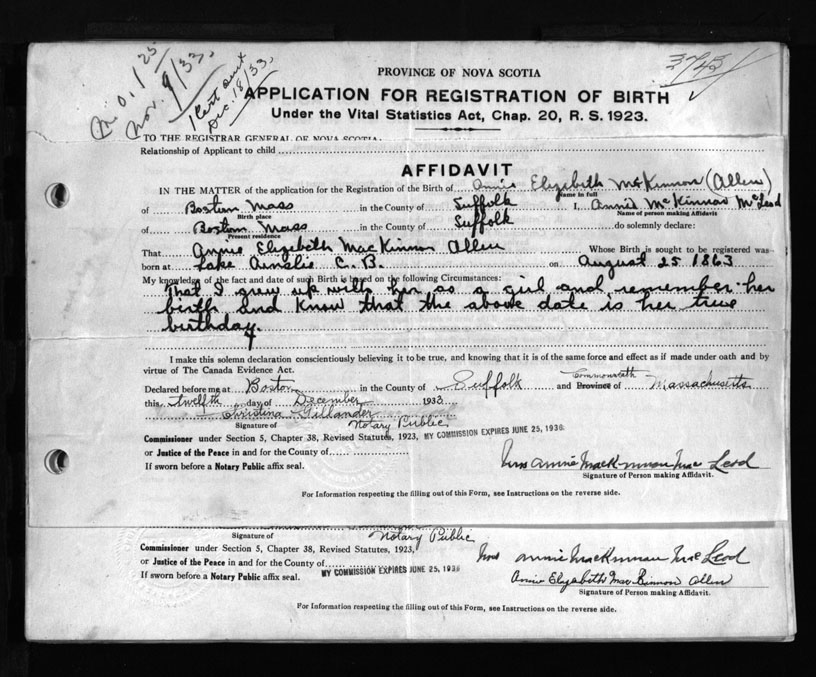 M.O. 1 25
Nov. 9/33.
1 Cert sent
Dec. 18/33.
3745
PROVINCE OF NOVA SCOTIA
APPLICATION FOR REGISTRATION OF BIRTH
Under the Vital Statistics Act, Chap. 20, R. S. 1923.
TO THE REGISTRAR GENERAL OF NOVA SCOTIA.
Relationship of Applicant to child
AFFIDAVIT
IN THE MATTER of the application for the Registration of the Birth of Annie Elizabeth McKinnon (Allen)
Name in full
of Boston Mass in the County of Suffolk I, Annie McKinnon McLeod
Birth place Name of person making Affidavit
of Boston Mass in the County of Suffolk do solemnly declare:
Present residence
That Annie Elizabeth MacKinnon Allen Whose Birth is sought to be registered was
born at Lake Ainslie C. B. on August 25 1863
My knowledge of the fact and date of such Birth is based on the following Circumstances:
That I grew up with her as a girl and remember her
birth and know that the above date is her true
birthday.
I make this solemn declaration conscientiously believing it to be true, and knowing that it is of the same force and effect as if made under oath and by
virtue of The Canada Evidence Act.
Commonwealth
Declared before me at Boston in the County of Suffolk and Province of Massachusetts
this twelfth day of December 1933
Christina Gillander
Signature of Notary Public
Commissioner under Section 5, Chapter 38, Revised Statutes, 1923, MY COMMISSION EXPIRES JUNE 25, 1936
or Justice of the Peace in and for the County of
If sworn before a Notary Public affix seal.
Mrs Annie MacKinnon MacLeod
Signature of Person making Affidavit.
For Information respecting the filling out of this Form, see Instructions on the reverse side.
Signature of Notary Public
Commissioner under Section 5, Chapter 38, Revised Statutes, 1923,
or Justice of the Peace in and for the County of
If sworn before a Notary Public affix seal. MY COMMISSION EXPIRES JUNE 25, 1936
Mrs Annie MacKinnon MacLeod
Annie Elizabeth MacKinnon Allen
Signature of Person making Affidavit.
For Information respecting the filling out of this Form, see Instructions on the reverse side.